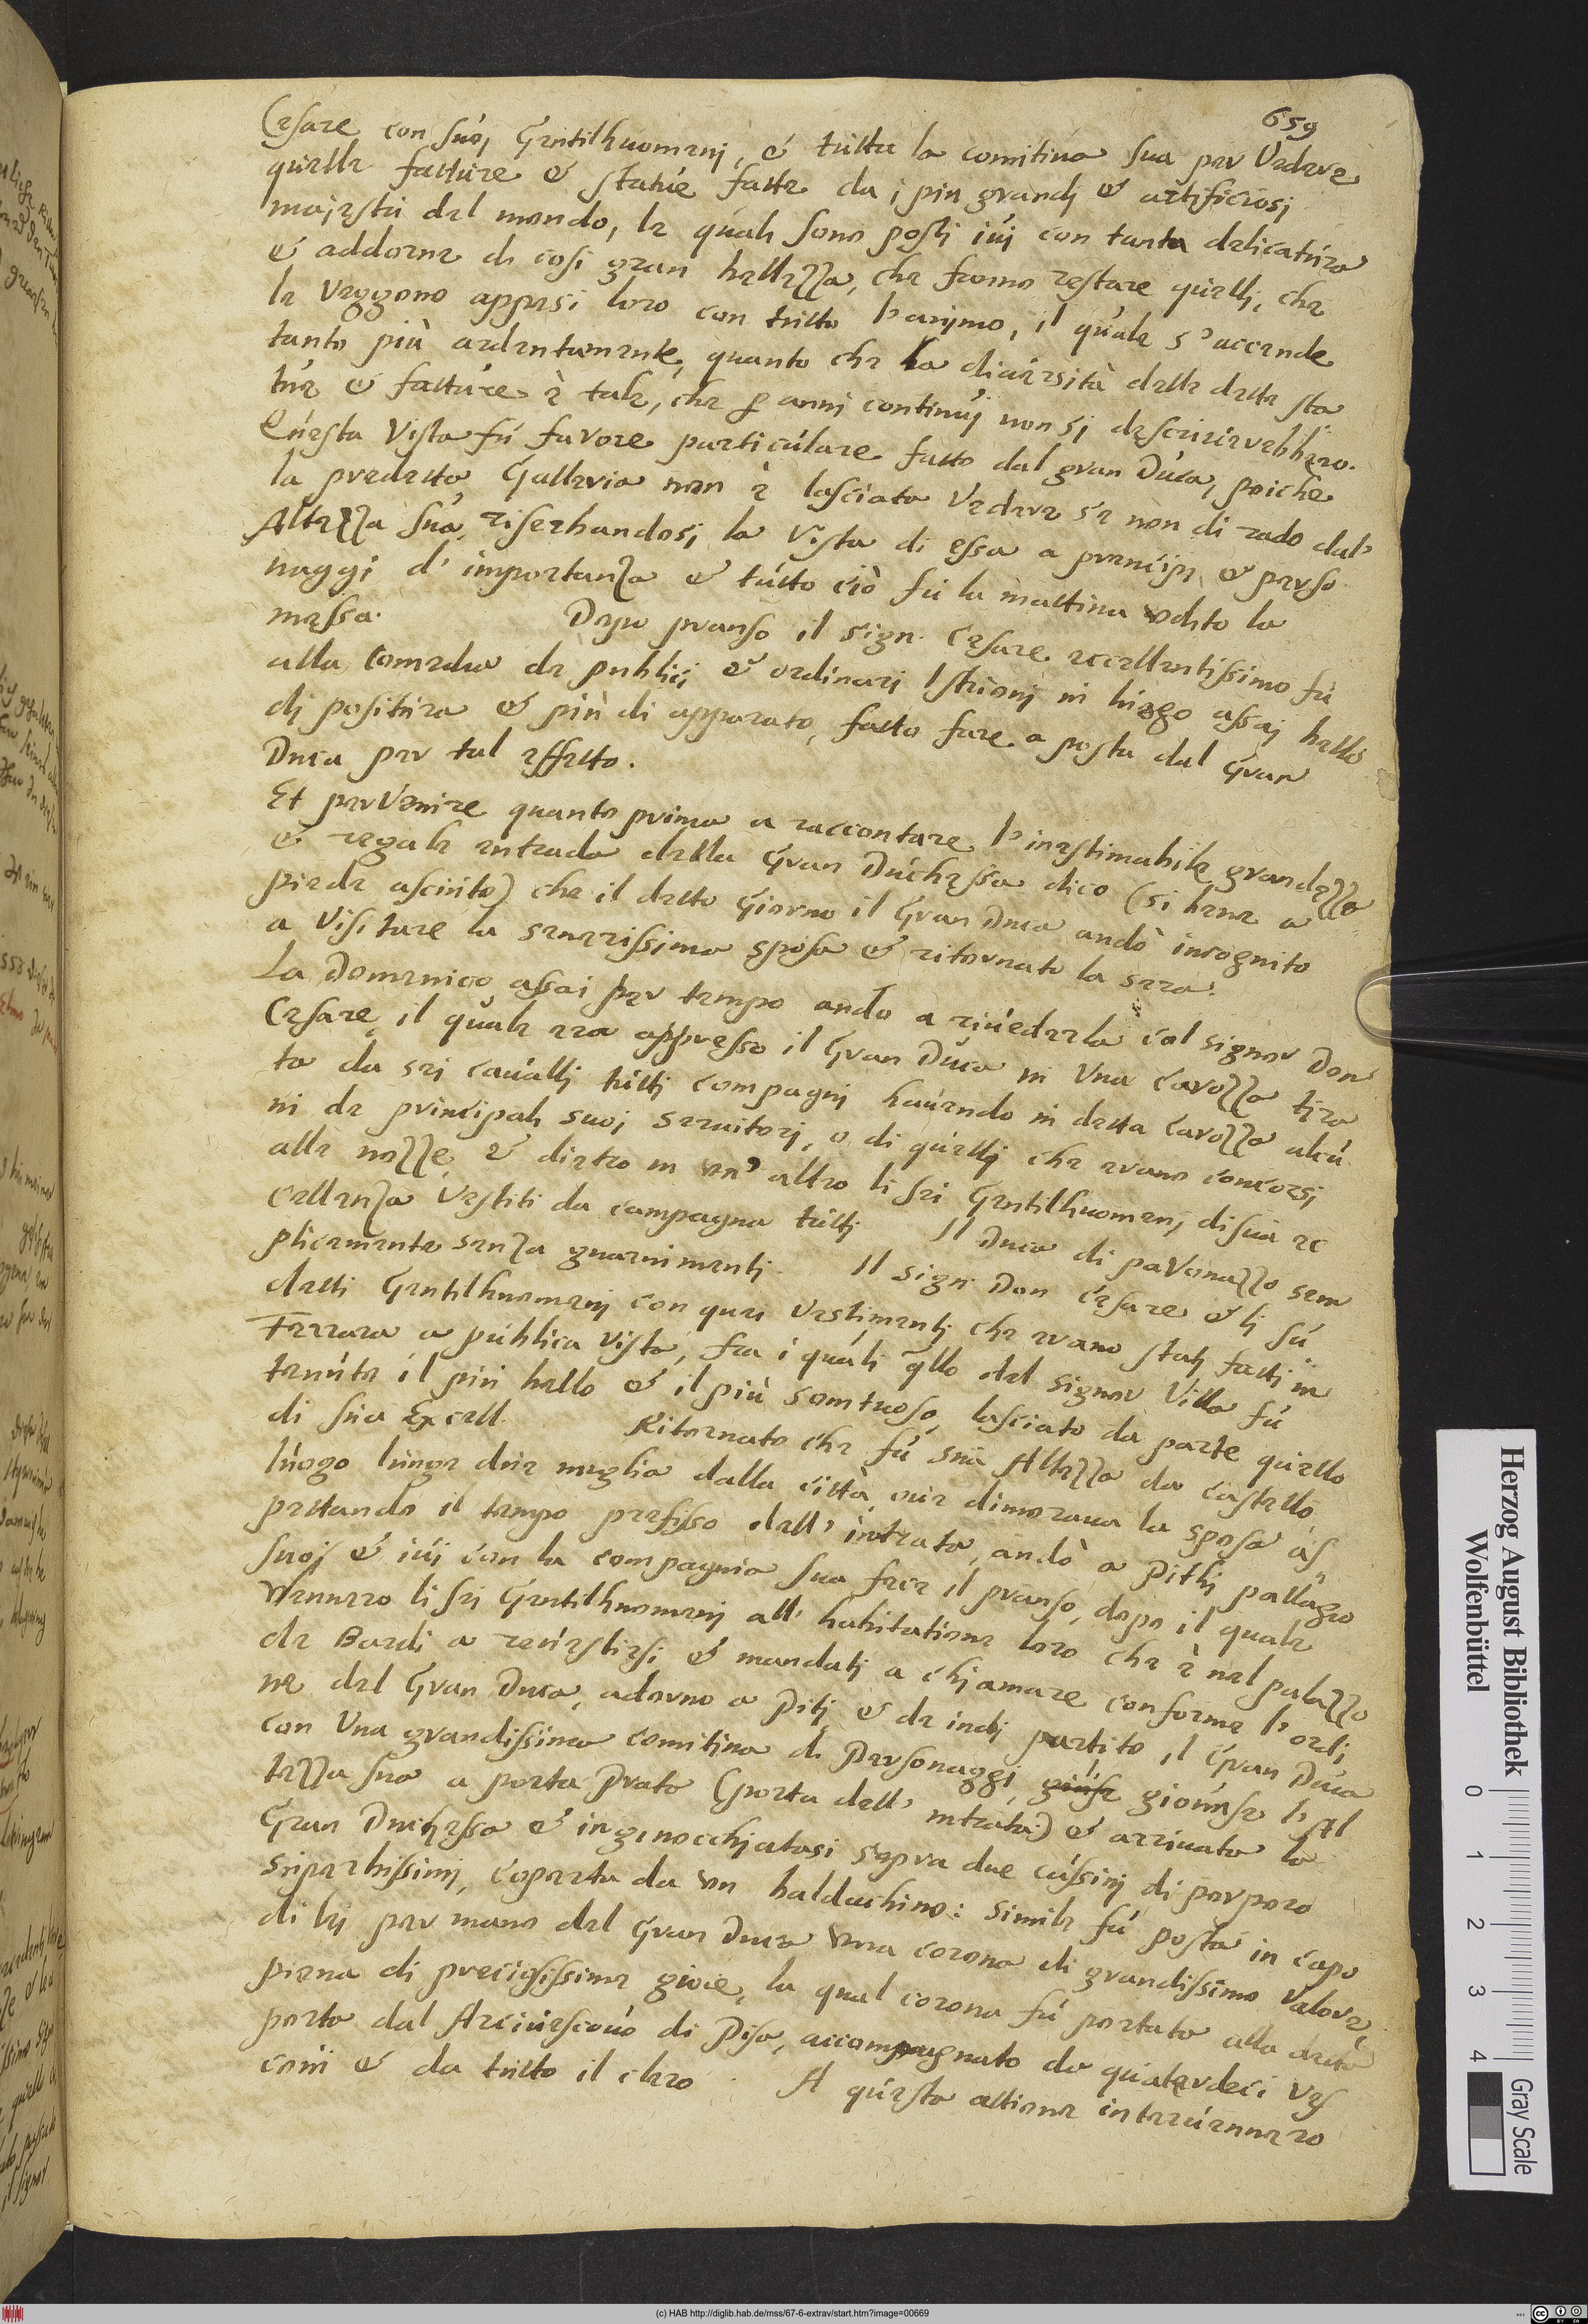 659
Cesare con suoj Gentilhuomenj, & tutta la comitiua sua per Vedere
quelle fatture & statue fatte da i piu grandj & artificiosj
majestri del mondo, le quali sono posti iuj con tanta delicatura
& addorne di cosi gran bellezza, che fanno restare quellj, che
le Veggono appresi loro con tutto l'animo, il quale s'accende
tanto più ardentamente, quanto che la diuersità delle dette sta
tue & fatture è tale, che p anni continuj non sj descriuerebbero.
Questa Vista fú favore particulare fatto dal gran Duca, poiche
la predetta Galleria non è lasciata Vedere se non di rado dal'
Altezza sua, riserbandosi la Vista di essa a prencipi & perso
naggi d'importanza & tutto ciò fu la mattina vdito la
messa. Dopo pranso il sign. Cesare eccellentissimo fú
alla Comedia de publici & ordinarj Istrionj in luogo assaj bello
dj positura & più di apparato, fatto fare a posta dal Gran
Duca per tal effetto.
Et per Venire quanto prima a raccontare l'inestimabile grandezza
& regale entrada della Gran Duchessa dico (si bene a
piede asciuto) che il detto Giorno il Gran Duca andò incognito
a Visitare la serenissima sposa & ritornato la sera.
La Domenica assai per tempo andò a riuederla col signor Don
Cesare, il quale era appresso il Gran Duca in Vna Carozza tira
ta da sei cauallj tuttj compagnj hauendo in detta Carozza alcu
ni de principali suoj seruitorj, o di quellj che erano concorsj
alle nozze, & dietro in vn' altra li sei Gentilhuomenj di sua ec
cellenza Vestiti da campagna tuttj Il Duca di paVonazzo sem
plicemente senza guarnimentj. Il sign. Don Cesare & lj su
detti Gentilhuomenj con quei Vestimentj che erano stati fattj in
Ferrara a publica Vista, fra i quali qllo del signor Villa fú
tenuto il piu bello & il più somtuoso, lasciato da parte quello
di sua Excell. Ritornato che fú sua Altezza da castello
luogo lunge due miglia dalla città, oue dimoraua la sposa as
pettando il tempo prefisso dell' intrata, andò a Pithj pallagio
suoj & iuj con la compagnia sua fece il pranso, dopo il quale
Vennero li sei Gentilhuomenj all' habitatione loro che è nel palazzo
de Bardi a reuestirsi & mandatj a chjamare conforme l'ordi
ne del Gran Duca, adorno a Pitj & de indj partito il Gran Duca
con Vna grandissima comitiua di Personaggi, giunse giounse l'Al
tezza sua a porta Prato (porta dell' intrata) & arriuato la
Gran Duchessa & inginocchjatasi sopra due cussinj di porpora
superbissimj, coperta da vn baldachino: simile fú posta in capo
di lej per mano del Gran Duca vna corona di grandissimo Valore,
piena di preciosissime gioie, la qual corona fú portata alla detta
porta dal Arciuescouo di Pisa, accompagnato da quaterdeci Ves
coui & da tutto il clero. A questa attione interuennero
Herzog August Bibliothek
Wolfenbüttel
0 1 2 3 4
Gray Scale
(c) HAB http://diglib.hab.de/mss/67-6-extrav/start.htm?image=00669